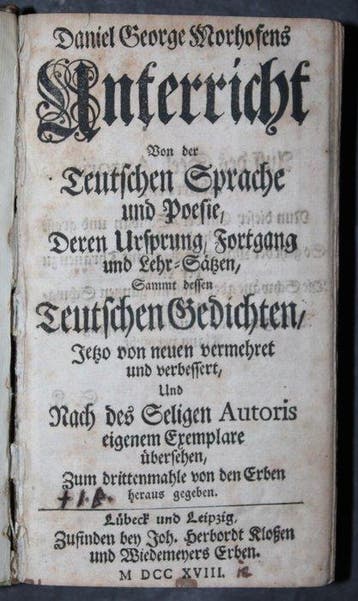 Daniel George Morhofens
Unterricht
Von der
Teutschen Sprache
und Poesie,
Deren Ursprung, Fortgang
und Lehr-Sätzen,
Sammt dessen
Teutschen Gedichten,
Jetzo von neuen vermehret
und verbessert,
Und
Nach des Seligen Autoris
eigenem Exemplare
übersehen,
Zum drittenmahle von den Erben
heraus gegeben.
Lübeck und Leipzig,
Zufinden bey Joh. Herbordt Kloßen
und Wiedemeyers Erben.
M DCC XVIII.